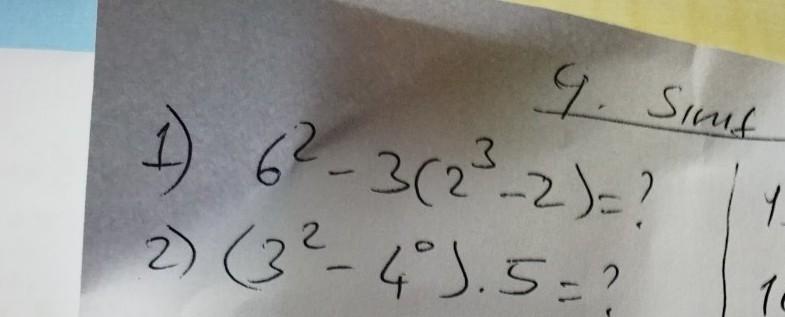 9. Sınıf
1) 6² - 3(2³ - 2) = ?
2) (3² - 4⁰). 5 = ?